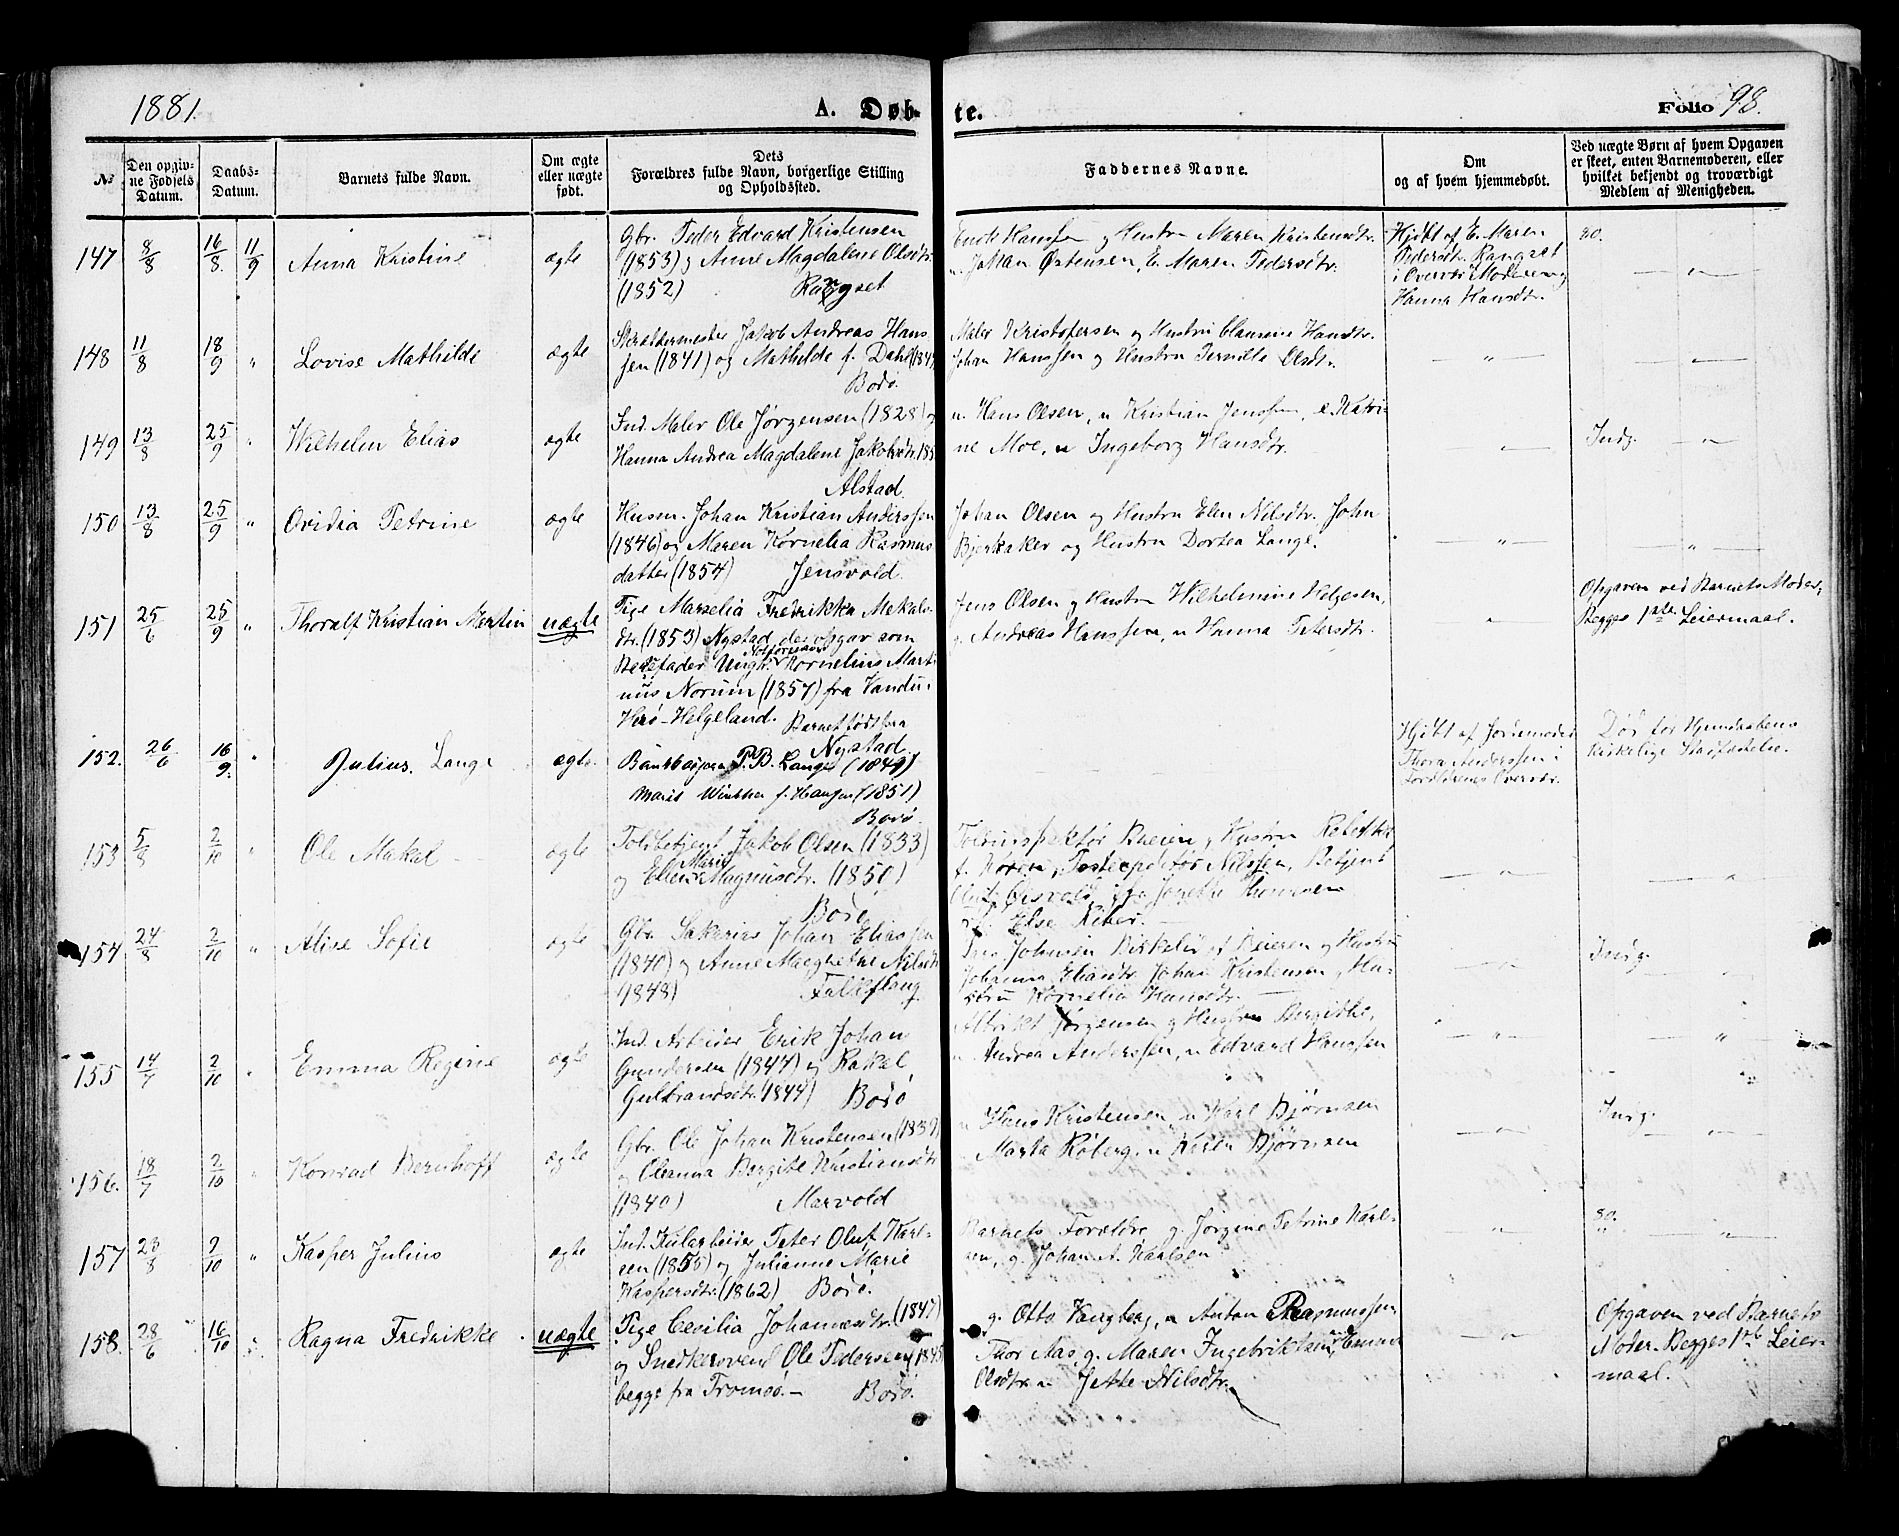 1881.
A. Døb-
te.
Folio 98.
№
Den opgiv-
ne Fødsels
Datum.
Daabs-
Datum.
Barnets fulde Navn.
Om ægte
eller uægte
født.
Dets
Forældres fulde Navn, borgerlige Stilling
og Opholdssted.
Faddernes Navne.
Om
og af hvem hjemmedøbt.
Ved uægte Børn af hvem Opgaven
er skeet, enten Barnemoderen, eller
hvilket bekjendt og troværdigt
Medlem af Menigheden.
147 8/8 16/8 11/9 Anna Kristine ægte
Gbr. Peder Edvard Kristensen
(1853) og Anne Magdalene Olsdtr.
(1852) Rangset
Hanssen og Hustru Maren Kristensdtr.
Johan Østensen, E. Maren Pedersdtr.
Hjdbt af E. Maren
Pedersdtr. Rangset
i Overvær Moderen og
Hanna Hansdtr.
148 11/8 18/9 " Lovise Mathilde ægte
Skræddermester Jakob Andreas Hans
sen (1841) og Mathilde f. Dahl
Bodø.
Maler Kristofersen og Hustru Clausine Hansdtr.
Johan Hanssen og Hustru Pernille Olsdtr.
149 13/8 25/9 " Wilhelm Elias ægte
Ind. Maler Ole Jørgensen (1828) og
Hanna Andrea Magdalene Jakobsdtr.
Alstad.
u. Hans Olsen, u. Kristian Jenssen, e. Katri-
ne Moe, u. Ingeborg Hansdtr.
Indg.
150 13/8 25/9 " Ovidia Petrine ægte
Husm. Johan Kristian Anderssen
(1846) og Maren Kornelia Rasmus
datter (1854) Jensvold.
Johan Olsen og Hustru Elen Nilsdtr. John
Bjerkaker og Hustru Dortea Lange.
151 25/6 25/9 " Thoralf Kristian Martin uægte
Pige Marselia Fredrikka Mekals-
dtr. (1853) Nystad, der opgav som
Barnefader Ungk. Kornelius Mart
nus Norum (1857) fra
Herø - Helgeland. Barnet født paa
Nystad
Jens Olsen og Hustru Wilhelmine Helgesen,
g. Andreas Hanssen, u. Hanna Petersdtr.
Opgaven ved Barnets Moder,
Begges 1ste Leiermaal.
152. 26/6 16/9. " Julius. Lange ægte.
P. B. Lange (1849)
Marie Winther f. Hansen (1851)
Bodø.
Hjdbt af Jordemoder
Thora Anderssen i
Forældrenes Overvær.
Død før Hjemmedaabens
kirkelige Stadfæstelse.
153 5/8 2/10 " Ole Mekal ægte
Toldbetjent Jakob Olsen (1833)
og Elen Marie Magnusdtr. (1850)
Bodø
Hustru
Nilssen, Betjent
Jonette Thomsen
Else Riber.
154 24/8 2/10 " Alise Sofie ægte
Gbr. Sakarias Johan Eliassen
(1840) og Anne Nilsdtr
(1848) Falkflaug
Johnsen Birkeli af Beieren og Hustru
Johanna Eliasdtr. Johan Kristensen, Hu-
stru Kornelia Hansdtr.
Indg.
155 14/7 2/10 " Emma Regine ægte
Ind. Arbeider Erik Johan
Gundersen (1844) og Rakel
Gulbrandsdtr. (1844) Bodø
Albrikt Jørgensen og Hustru Bergithe,
u. Andrea Anderssen, u. Edvard Hanssen
156. 18/7 2/10 " Konrad Bernhoff ægte
Gbr. Ole Johan Kristensen (1839)
og Oleanna Bergite Kristiansdtr
(1840) Marvold
u. Hans Kristensen, u. Karl Bjørnsen
Marta Roberg, u. Karen Bjørnsen
Indg.
157 23/8 9/10 " Kasper Julius ægte
Ind. Kularbeider Peter Oluf Karl-
sen (1855) og Julianne Marie
Kaspersdtr. (1862) Bodø.
Barnets Forældre g. Jørgine Petrine Karl-
sen, g. Johan A. Karlsen
158. 28/6 16/10 Ragna Fredrikke uægte
Pige Cecilia Johannesdtr. (1847)
og Snedkersvend Ole Pedersen (1845
begge fra Tromsø.- Bodø.
g. Otto Vangberg, u. Anton Rasmussen,
Thor Aas, g. Maren Ingebriktsen, Emma
Olsdtr. u. Jette Nilsdtr.
Opgaven ved Barnets
Moder. Begges 1ste Leier-
maal.